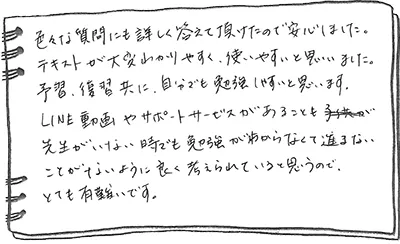 色々な質問にも詳しく答えて頂けたので安心しました。
テキストが大変わかりやすく、使いやすいと思いました。
予習、復習共に、自分でも勉強しやすいと思います。
LINE動画やサポートサービスがあることも
先生がいない時でも勉強がわからなくて進まない
ことがないように良く考えられていると思うので、
とても有難いです。